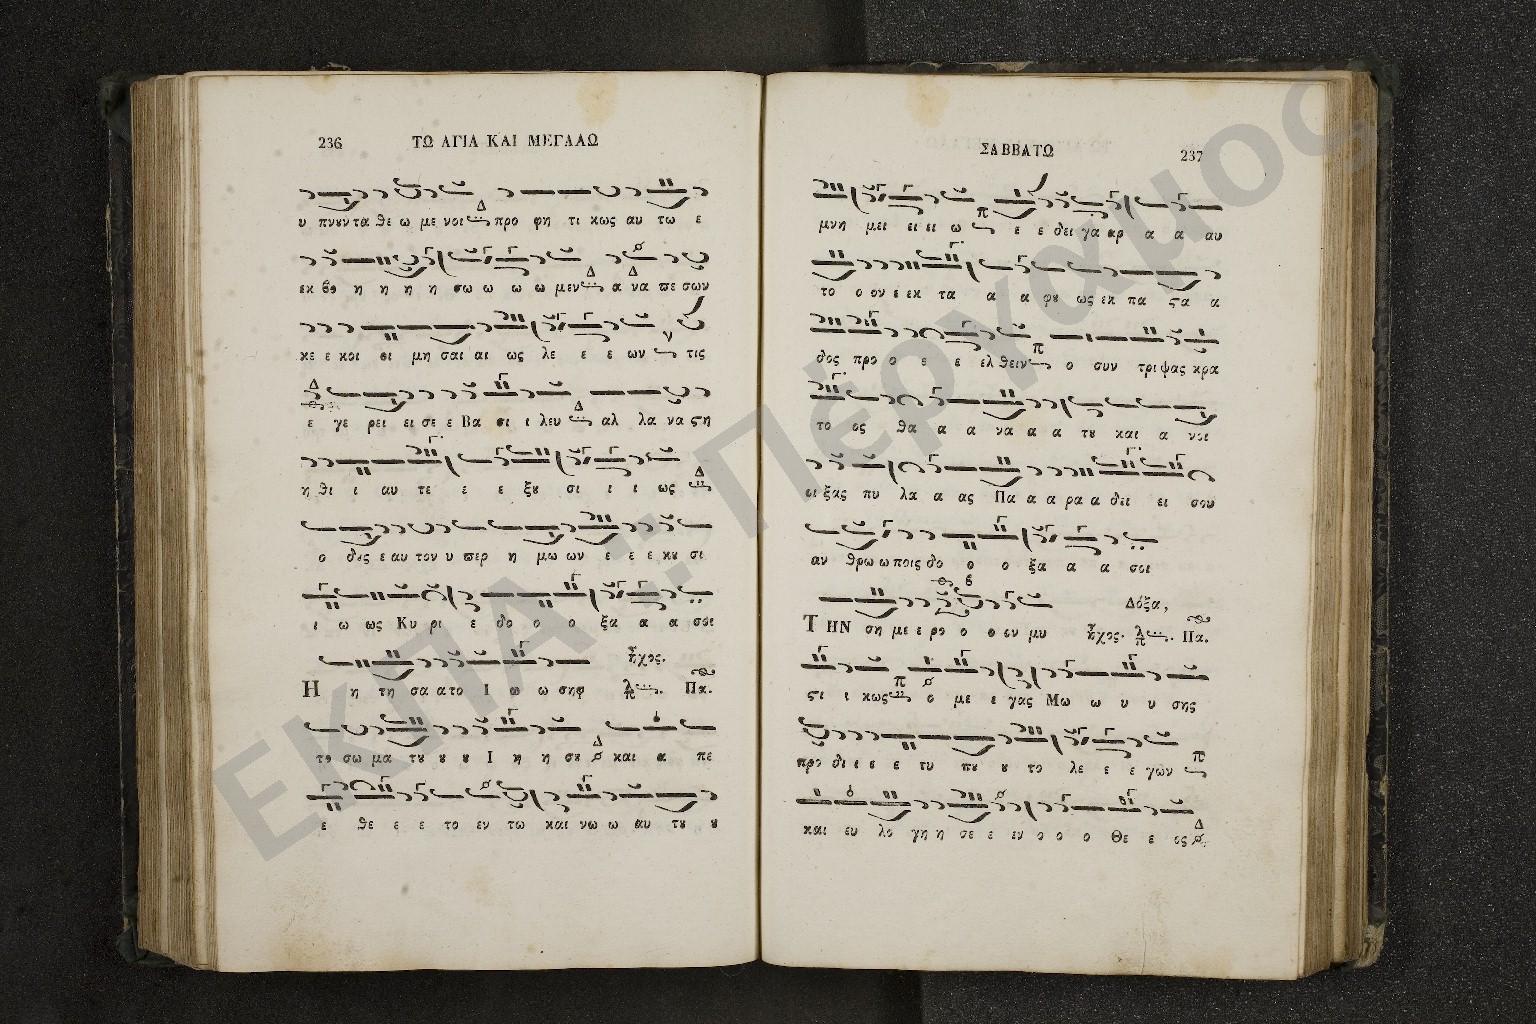 236 ΤΩ ΑΓΙΑ ΚΑΙ ΜΕΓΑΛΩ
υ πνȣν τα θε ω με νοι προ φη τι κως αυ τω ε
εκ βο η η η η σω ω ω ω μεν α να πε σων
κε ε κοι οι μη σαι αι ως λε ε ε ων τις
ε γε ρει ει σε ε Βα σι ι λευ αλ λα να ϛη
η θι ι αυ τε ε ε ξȣ σι ι ι ως
ο δȣς ε αυ τον υ περ η μω ων ε ε ε κȣ σι
ι ω ως Κυ ρι ε δο ο ο ξα α α σοι
Η η τη σα ατο Ι ω ω σηφ ἦχος. Πα.
το σω μα τȣ ȣ ȣ Ι η η σȣ και α πε
ε θε ε ε το εν τω και νω ω αυ τȣ ȣ
ΣΑΒΒΑΤΩ 237
μνη μει ει ει ω ε ε δει γα αρ α α αυ
το ο ον ε εκ τα α α φȣ ως εκ πα ϛα α
δος προ ο ε ε ελ θειν ο συν τρι ψας κρα
το ος θα α α να α α τȣ και α νοι
οι ξας πυ λα α ας Πα α α ρα α δει ει σου
αν θρω ω ποις δο ο ο ξα α α σοι
Δόξα,
ΤΗΝ ση με ε ρο ο ο ον μυ ἦχος. Πα.
ϛι ι κως ο με ε γας Μω ω υ υ σης
προ δι ε ε ε τυ πȣ ȣ το λε ε ε γων
και ευ λο γη η σε ε εν ο ο ο Θε ε ος
ΕΚΠΑ: Πέργαμος